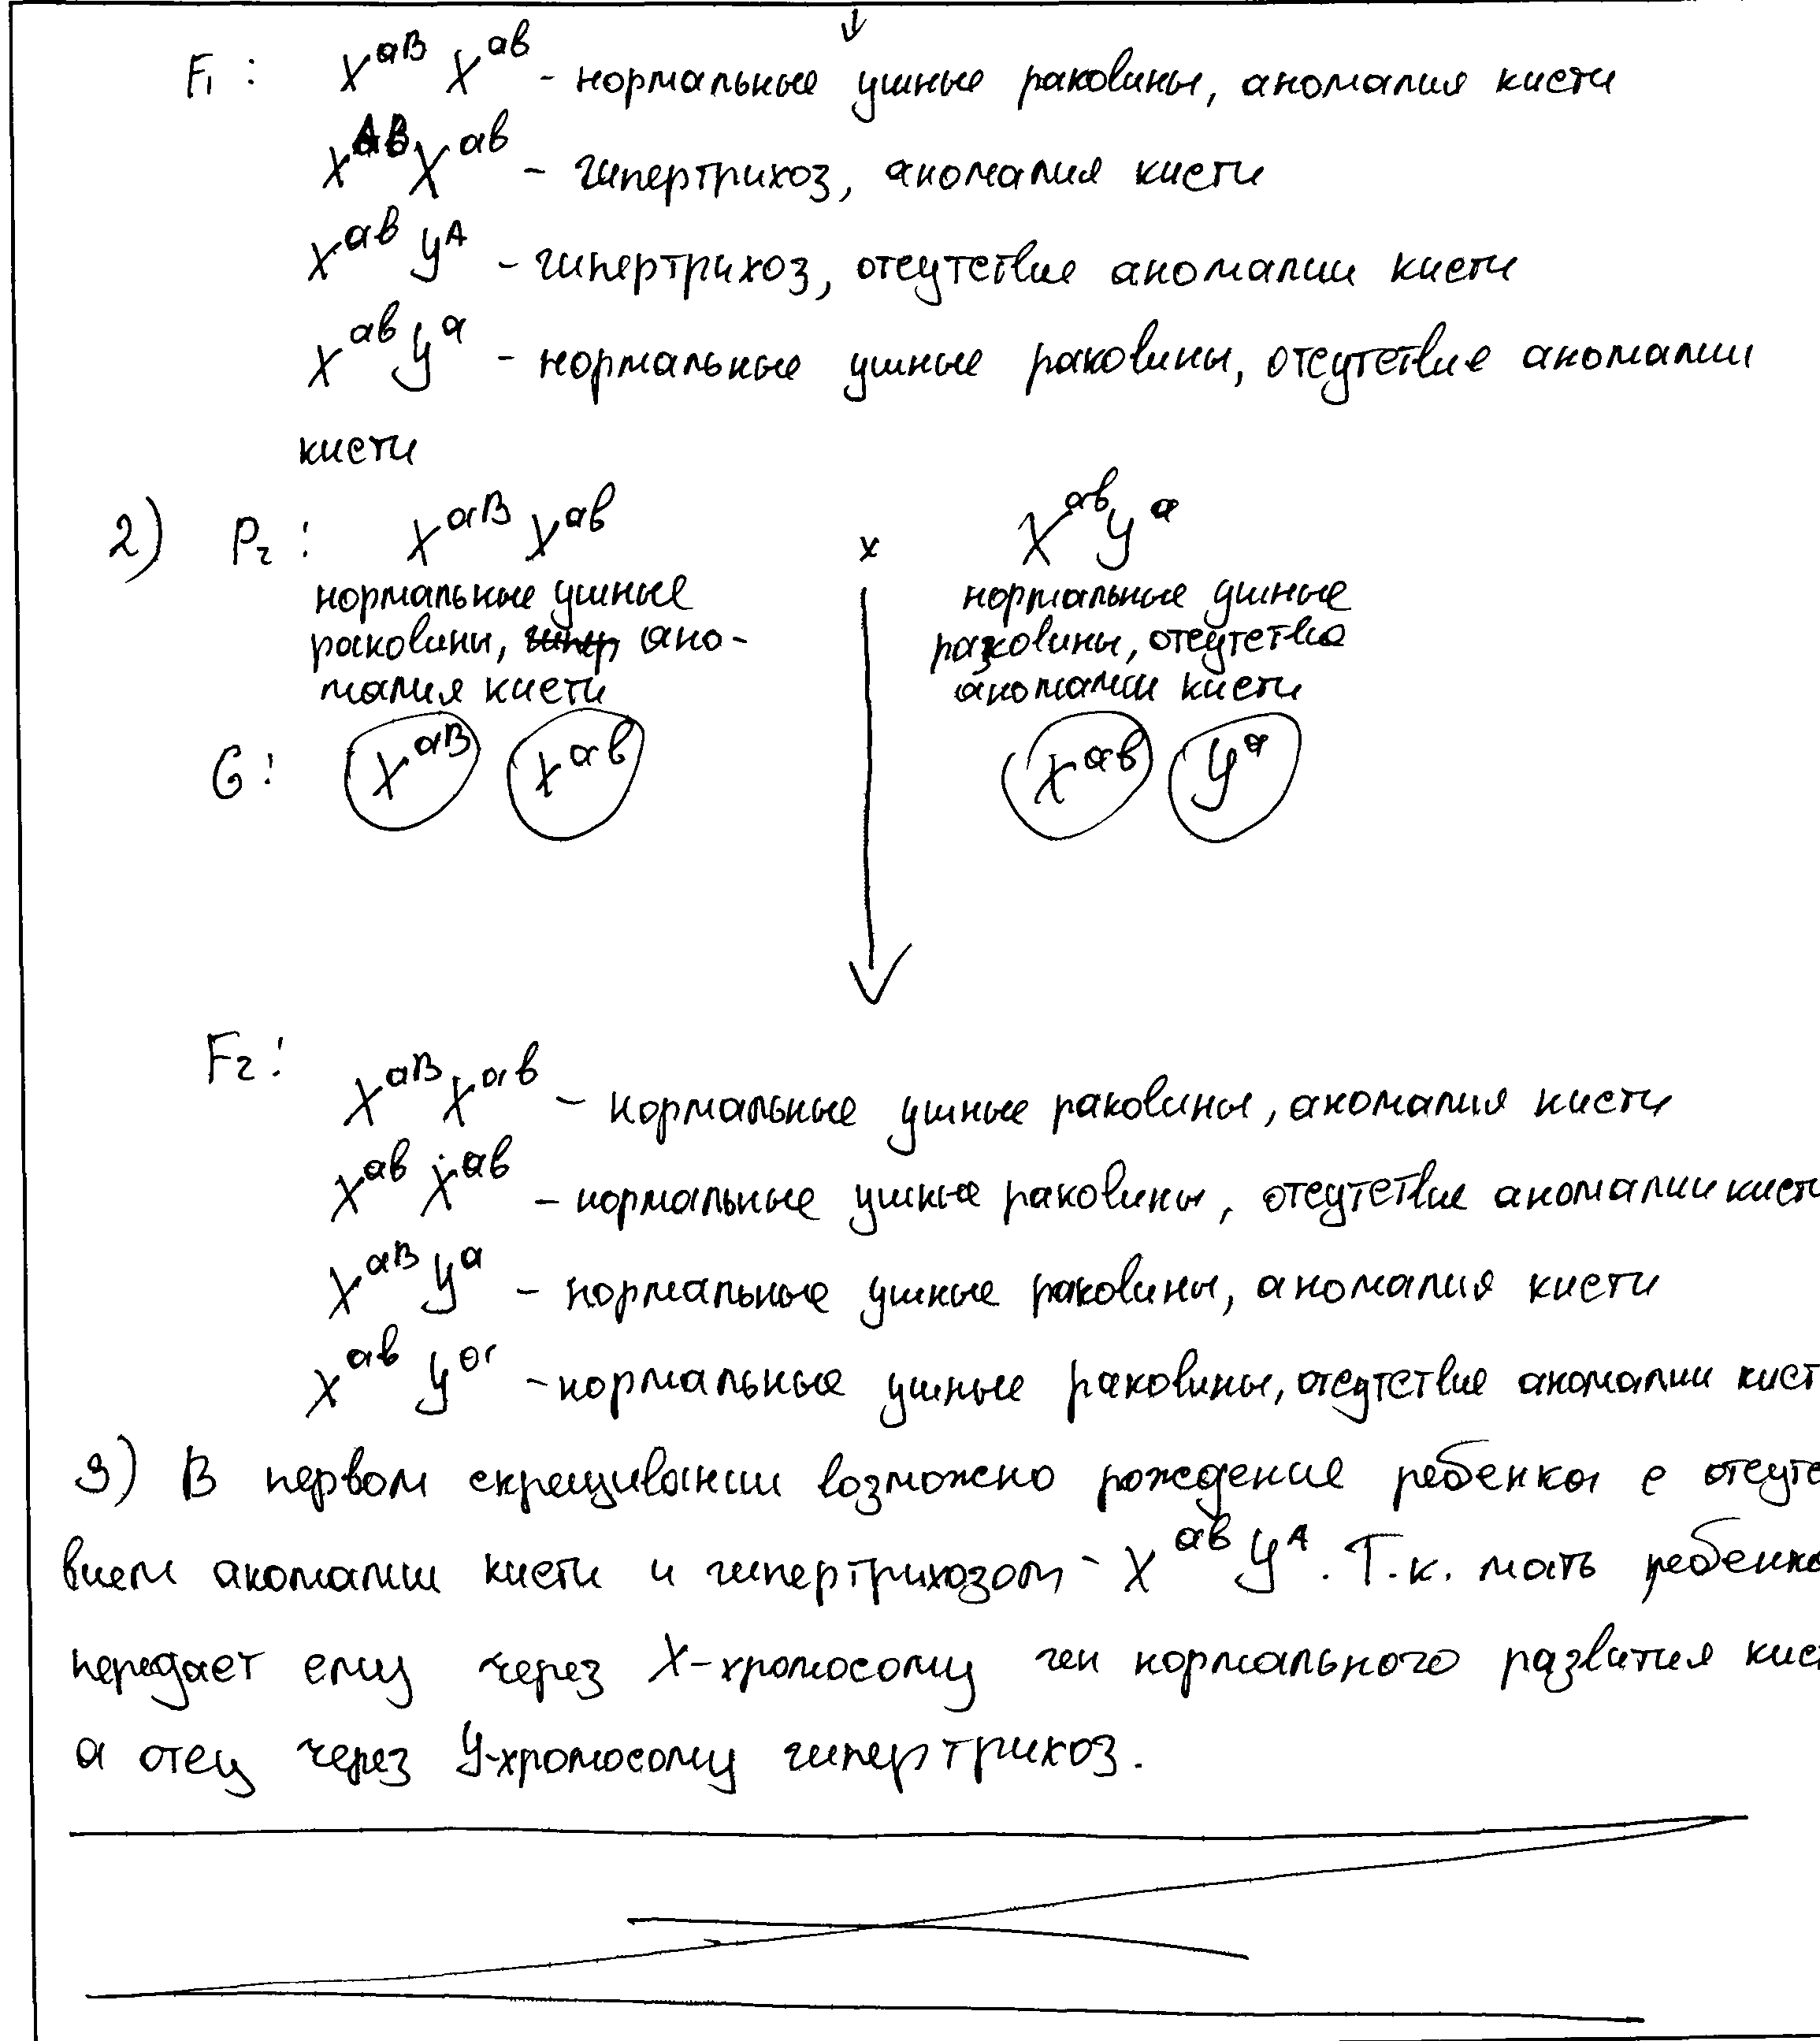 F₁ : X^aB X^ab - нормальные ушные раковины, аномалия кисти
X^AB X^ab - гипертрихоз, аномалия кисти
X^ab Y^A - гипертрихоз, отсутствие аномалии кисти
X^ab Y^a - нормальные ушные раковины, отсутствие аномалии
кисти
2) P₂ : X^aB X^ab x X^ab Y^a
нормальные ушные нормальные ушные
раковины, ано- раковины, отсутствие
малия кисти аномалии кисти
G: X^aB X^ab X^ab Y^a
F₂:
X^aB X^ab - нормальные ушные раковины, аномалия кисти
X^ab X^ab - нормальные ушные раковины, отсутствие аномалии кисти
X^aB Y^a - нормальные ушные раковины, аномалия кисти
X^ab Y^a - нормальные ушные раковины, отсутствие аномалии кист
3) В первом скрещивании возможно рождение ребенка с отсутс
вием аномалии кисти и гипертрихозом - X^ab Y^A. Т.к. мать ребенка
передает ему через X-хромосому ген нормального развития кис
а отец через Y-хромосому гипертрихоз.